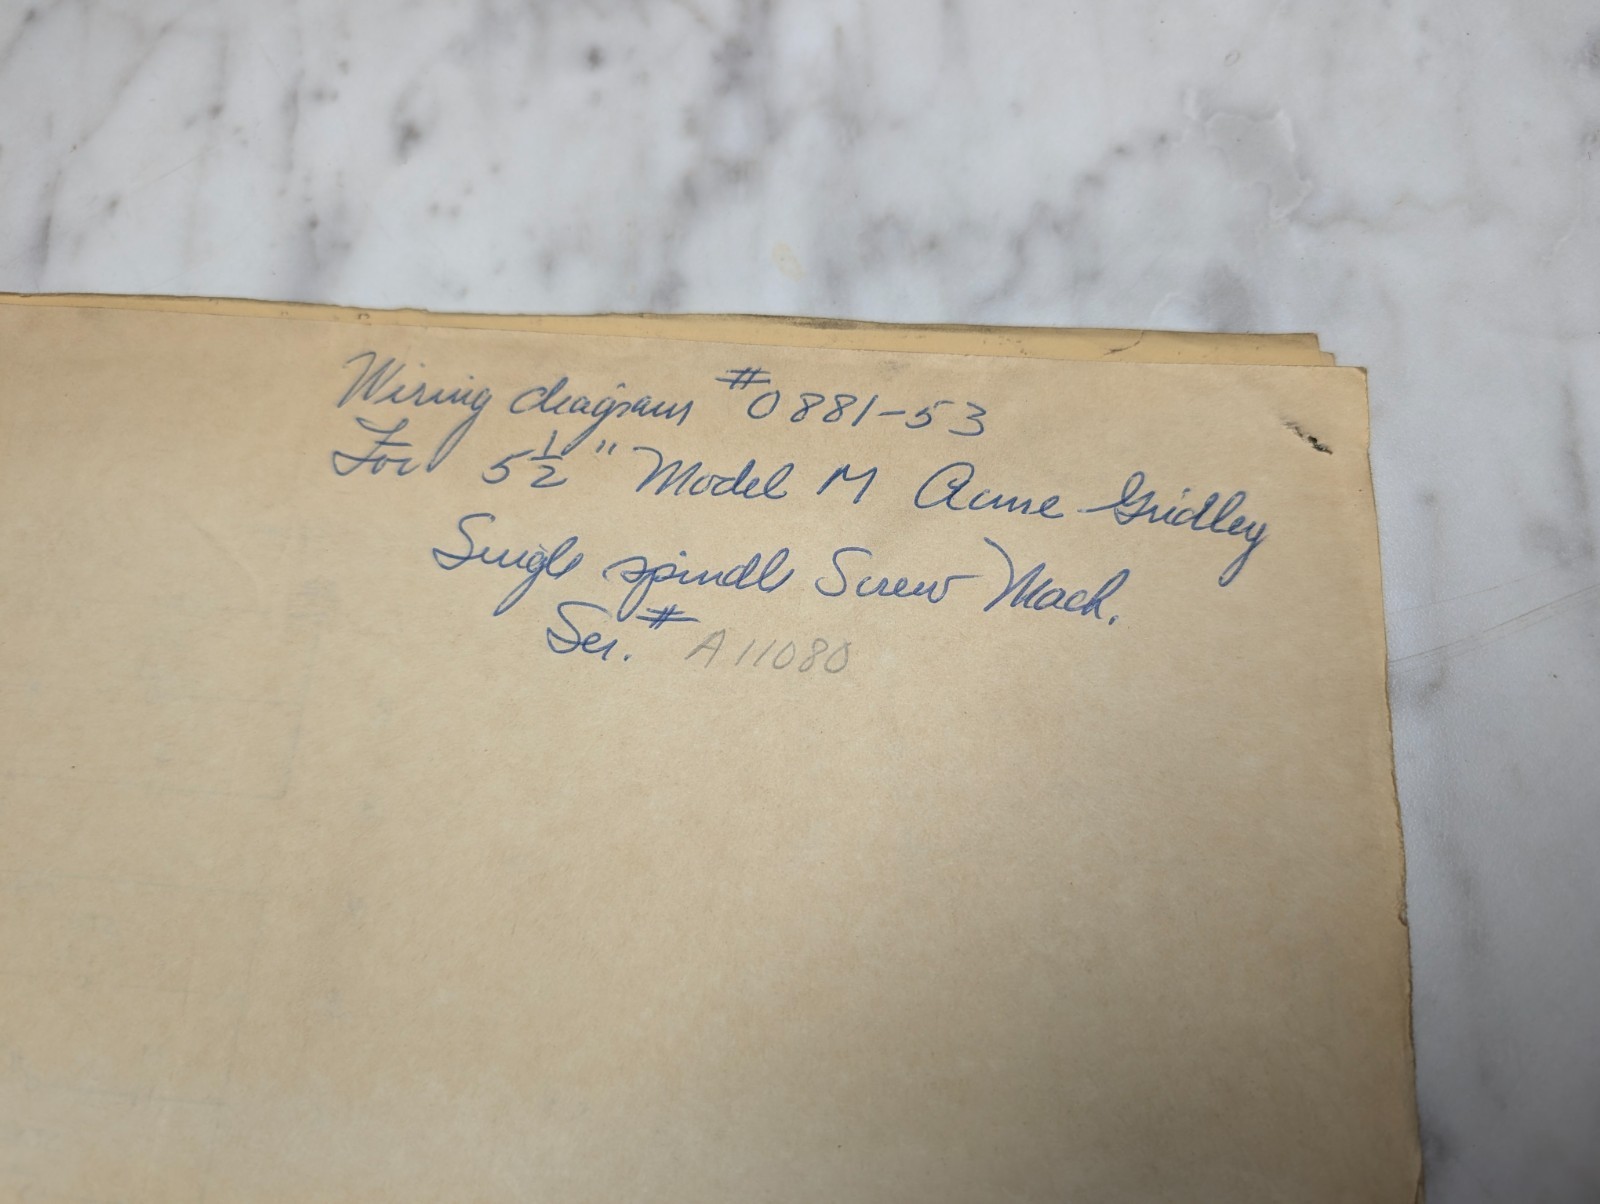 Wiring diagram #0881-53
For 5 1/2" Model M Acme Gridley
Single spindle Screw Mach.
Ser. # A11080